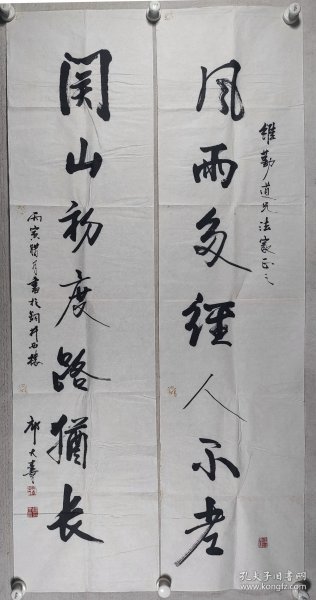 維勤道兄法家正之
风雨多經人不老
関山初度路猶长
丙寅腊月書於銅井西樓
孔夫子旧书网
www.kongfz.com